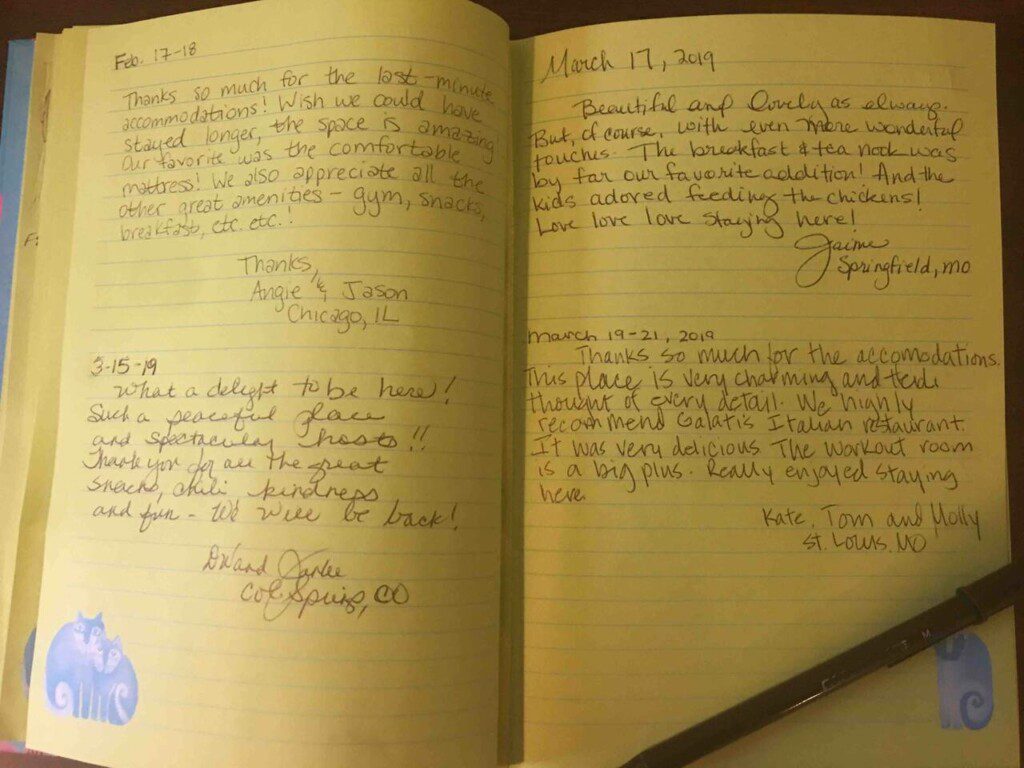 Feb. 17-18
Thanks so much for the last-minute
accommodations! Wish we could have
stayed longer, the space is amazing
Our favorite was the comfortable
mattress! We also appreciate all the
other great amenities - gym, snacks,
breakfast, etc. etc.!
Thanks,
Angie & Jason
Chicago, IL
3-15-19
What a delight to be here!
Such a peaceful place
and spectacular hosts!!
Thank you for all the great
snacks, chili kindness
and fun - We will be back!
Col Springs, CO
March 17, 2019
Beautiful and lovely as always.
But, of course, with even more wonderful
touches. The breakfast & tea nook was
by far our favorite addition! And the
kids adored feeding the chickens!
Love love love staying here!
Jaime
Springfield, MO
March 19-21, 2019
Thanks so much for the accomodations.
This place is very charming and
thought of every detail. We highly
recommend Galati's Italian restaurant.
It was very delicious. The workout room
is a big plus. Really enjoyed staying
here.
Kate, Tom and Molly
St. Louis, MO